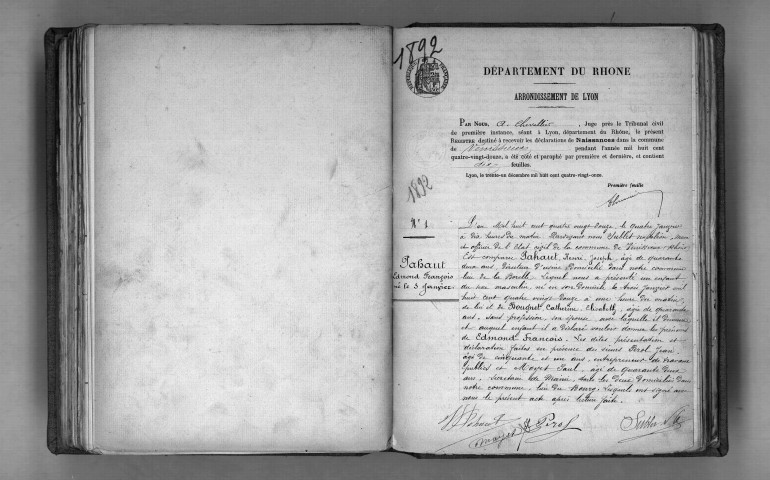 1892
DÉPARTEMENT DU RHONE
ARRONDISSEMENT DE LYON
PAR NOUS, A. Chevallier, Juge près le Tribunal civil
de première instance, séant à Lyon, département du Rhône, le présent
REGISTRE destiné à recevoir les déclarations de Naissances dans la commune
de Vénissieux pendant l'année mil huit cent
quatre-vingt-douze, a été coté et paraphé par première et dernière, et contient
feuilles.
Lyon, le trente-un décembre mil huit cent quatre-vingt-onze.
Première feuille
1892
N° 1
Pahaut
Edmond François
né le 3 Janvier
L'an Mil huit cent quatre vingt douze, le quatre janvier
à dix heures du matin Pardevant nous Sublet
et officier de l'Etat civil de la commune de Vénissieux Rhône
Est comparu Pahaut, Henri Joseph, âgé de quarante
deux ans, Directeur d'usine Domicilié dans notre commune
lieu de la Borelle Lequel nous a présenté un enfant
du sexe masculin, né en son domicile le trois janvier mil
huit cent quatre vingt douze à une heure du matin,
de lui et de Bouquet, Catherine Elisabeth, âgée de quarante
ans, sans profession, son épouse, avec laquelle il demeure
et auquel enfant il a déclaré vouloir donner les prénoms
de Edmond François. Les dites présentation et
déclaration faites en présence des sieurs Perol Jean,
âgé de cinquante et un ans, entrepreneur de travaux
publics et Mayet Paul, âgé de quarante deux
ans, Secrétaire de Mairie, tous les deux Domiciliés dans
notre commune, lieu du Bourg, Lesquels ont signé avec
nous le présent acte après lecture faite.
H Pahaut
Mayet
Perol